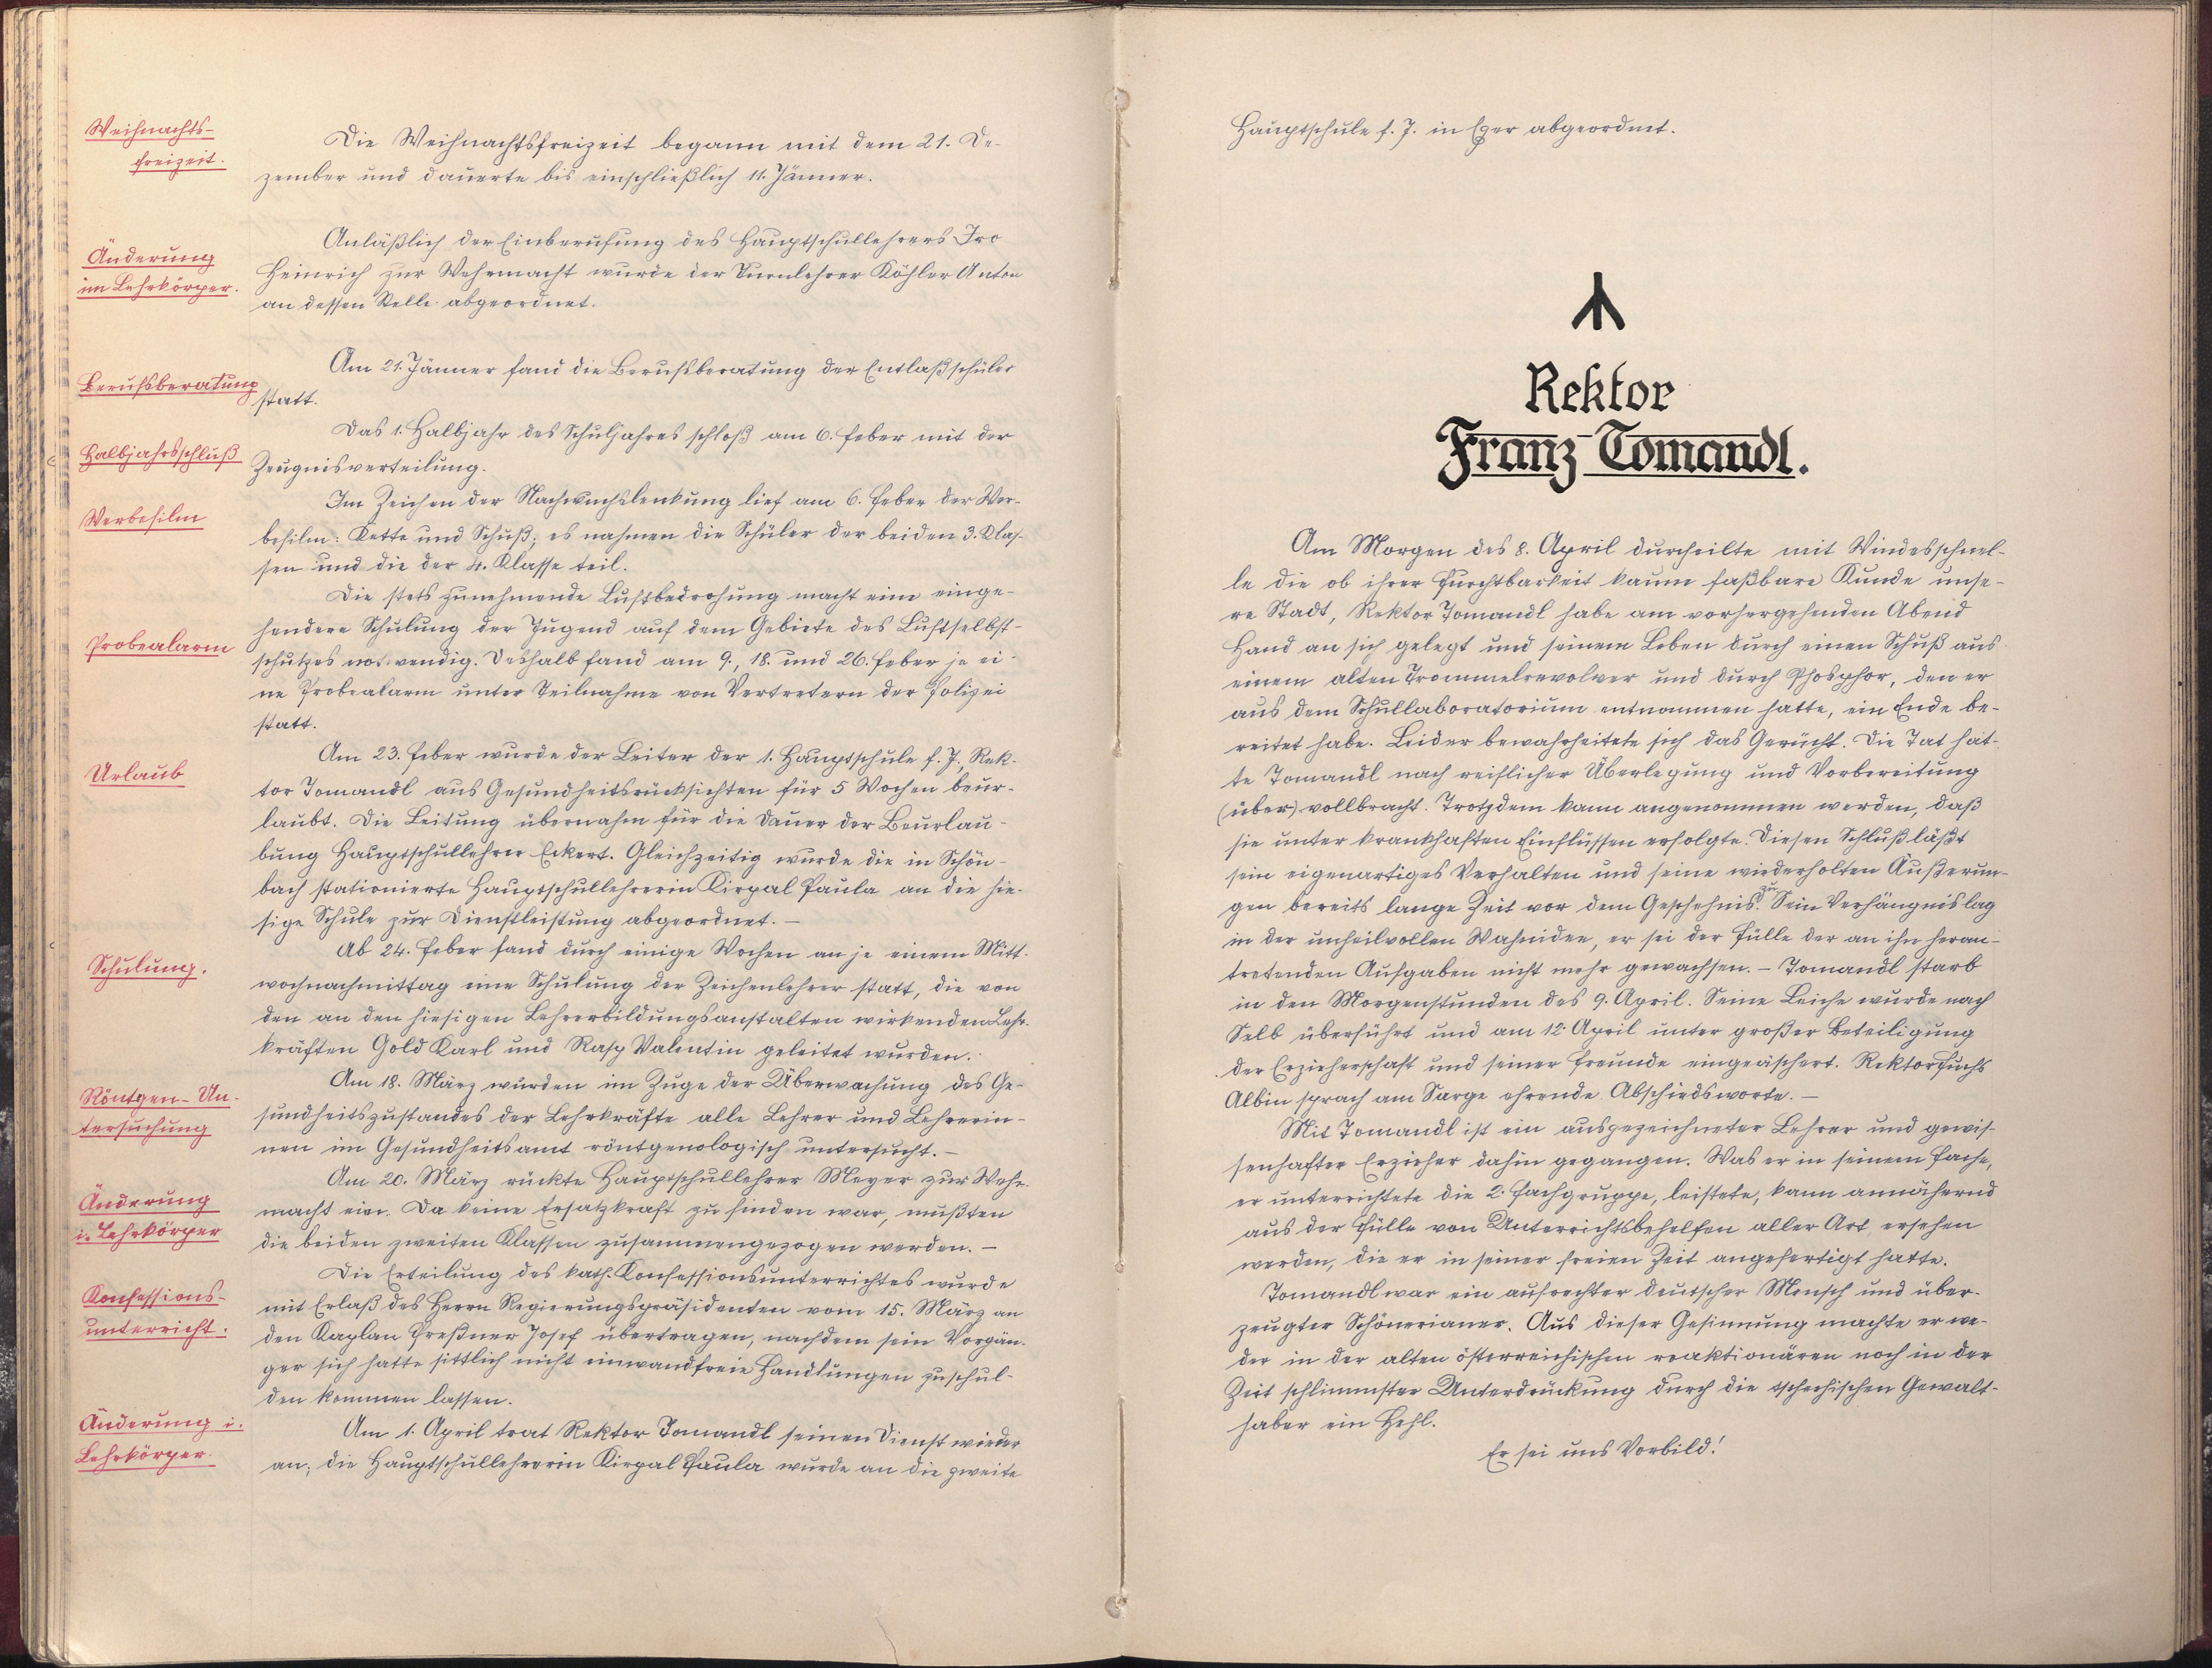 Weihnachts-
freizeit.
Die Weihnachtsfreizeit begann mit dem 21. De-
zember und dauerte bis einschließlich 11. Jänner.
Änderung
im Lehrkörper.
Anläßlich der Einberufung des Hauptschullehrers Iro
Heinrich zur Wehrmacht wurde der Turnlehrer Köhler Anton
an dessen Stelle abgeordnet.
Berufsberatung
Am 21. Jänner fand die Berufsberatung der Entlaßschüler
statt.
Halbjahrsschluß
Das 1. Halbjahr des Schuljahres schloß am 6. Feber mit der
Zeugnisverteilung.
Werbefilm
Im Zeichen der Nachwuchslenkung lief am 6. Feber der Wer-
befilm: Kette und Schuß; es nahmen die Schüler der beiden 3. Klas-
sen und die der 4. Klasse teil.
Probealarm
Die stets zunehmende Luftbedrohung macht eine einge-
hendere Schulung der Jugend auf dem Gebiete des Luftselbst-
schutzes notwendig. Deshalb fand am 9., 18. und 26. Feber je ei-
ne Probealarm unter Teilnahme von Vertretern der Polizei
statt.
Urlaub
Am 23. Feber wurde der Leiter der 1. Hauptschule f. J., Rek-
tor Tomandl aus Gesundheitsrücksichten für 5 Wochen beur-
laubt. Die Leitung übernahm für die Dauer der Beurlau-
bung Hauptschullehrer Eckert. Gleichzeitig wurde die in Schön-
bach stationierte Hauptschullehrerin Kirpal Paula an die hie-
sige Schule zur Dienstleistung abgeordnet. —
Schulung.
Ab 24. Feber fand durch einige Wochen an je einem Mitt-
wochnachmittag eine Schulung der Zeichenlehrer statt, die von
den an den hiesigen Lehrerbildungsanstalten wirkenden Lehr-
kräften Gold Karl und Rasp Valentin geleitet wurden.
Röntgen-Un-
tersuchung
Am 18. März wurden im Zuge der Überwachung des Ge-
sundheitszustandes der Lehrkräfte alle Lehrer und Lehrerin-
nen im Gesundheitsamt röntgenologisch untersucht. —
Änderung
i. Lehrkörper
Am 20. März rückte Hauptschullehrer Meyer zur Wehr-
macht ein. Da keine Ersatzkraft zu finden war, mußten
die beiden zweiten Klassen zusammengezogen werden. —
Konfessions-
unterricht.
Die Erteilung des kath. Konfessionsunterrichtes wurde
mit Erlaß des Herrn Regierungspräsidenten vom 15. März an
den Kaplan Preßner Josef übertragen, nachdem sein Vorgän-
ger sich hatte sittlich nicht einwandfreie Handlungen zuschul-
den kommen lassen.
Änderung i.
Lehrkörper.
Am 1. April trat Rektor Tomandl seinen Dienst wieder
an; die Hauptschullehrerin Kirpal Paula wurde an die zweite
Hauptschule f. J. in Eger abgeordnet.
Rektor
Franz Tomandl.
Am Morgen des 8. April durcheilte mit Windesschnel-
le die ob ihrer Furchtbarkeit kaum faßbare Kunde unse-
re Stadt, Rektor Tomandl habe am vorhergehenden Abend
Hand an sich gelegt und seinem Leben durch einen Schuß aus
einem alten Trommelrevolver und durch Phosphor, den er
aus dem Schullaboratorium entnommen hatte, ein Ende be-
reitet habe. Leider bewahrheitete sich das Gerücht. Die Tat hat-
te Tomandl nach reiflicher Überlegung und Vorbereitung
(über) vollbracht. Trotzdem kann angenommen werden, daß
sie unter krankhaften Einflüssen erfolgte. Diesen Schluß läßt
sein eigenartiges Verhalten und seine wiederholten Äußerun-
gen bereits lange Zeit vor dem Geschehnis zu. Sein Verhängnis lag
in der unheilvollen Wahnidee, er sei der Fülle der an ihn heran-
tretenden Aufgaben nicht mehr gewachsen. — Tomandl starb
in den Morgenstunden des 9. April. Seine Leiche wurde nach
Selb überführt und am 12. April unter großer Beteiligung
der Erzieherschaft und seiner Freunde eingeäschert. Rektor Fuchs
Albin sprach am Sarge ehrende Abschiedsworte. —
Mit Tomandl ist ein ausgezeichneter Lehrer und gewis-
senhafter Erzieher dahin gegangen. Was er in seinem Fache,
er unterrichtete die 2. Fachgruppe, leistete, kann annähernd
aus der Fülle von Unterrichtsbehelfen aller Art ersehen
werden, die er in seiner freien Zeit angefertigt hatte.
Tomandl war ein aufrechter deutscher Mensch und über-
zeugter Schönerianer. Aus dieser Gesinnung machte er we-
der in der alten österreichischen reaktionären noch in der
Zeit schlimmster Unterdrückung durch die tschechischen Gewalt-
haber ein Hehl.
Er sei uns Vorbild!